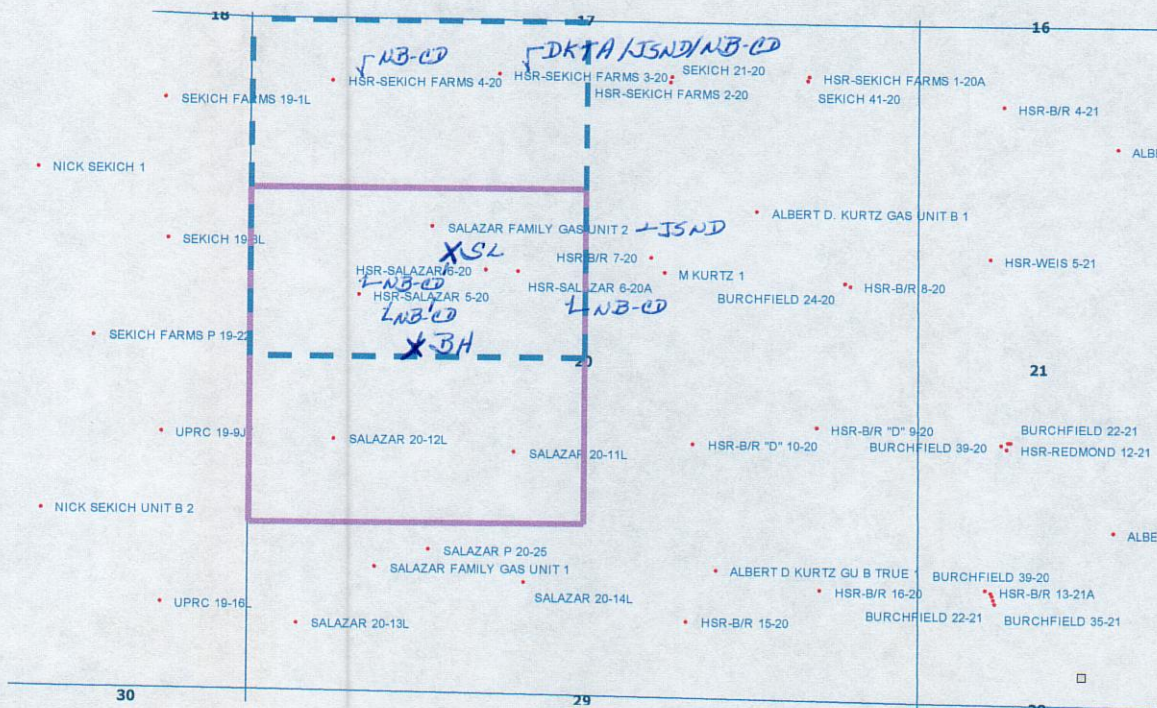 18
17
16
NB-CD
DKTA/JSND/NB-CD
HSR-SEKICH FARMS 4-20
HSR-SEKICH FARMS 3-20
SEKICH 21-20
HSR-SEKICH FARMS 1-20A
SEKICH FARMS 19-1L
HSR-SEKICH FARMS 2-20
SEKICH 41-20
HSR-B/R 4-21
NICK SEKICH 1
ALBE
ALBERT D. KURTZ GAS UNIT B 1
SALAZAR FAMILY GAS UNIT 2
JSND
SEKICH 19-8L
X SL
HSR-B/R 7-20
HSR-WEIS 5-21
HSR-SALAZAR 6-20
M KURTZ 1
NB-CD
HSR-SALAZAR 6-20A
HSR-B/R 8-20
HSR-SALAZAR 5-20
BURCHFIELD 24-20
NB-CD
NB-CD
SEKICH FARMS P 19-22
X BH
20
21
UPRC 19-9J
SALAZAR 20-12L
HSR-B/R "D" 9-20
BURCHFIELD 22-21
SALAZAR 20-11L
HSR-B/R "D" 10-20
BURCHFIELD 39-20
HSR-REDMOND 12-21
NICK SEKICH UNIT B 2
ALBE
SALAZAR P 20-25
SALAZAR FAMILY GAS UNIT 1
ALBERT D KURTZ GU B TRUE 1
BURCHFIELD 39-20
UPRC 19-16L
SALAZAR 20-14L
HSR-B/R 16-20
HSR-B/R 13-21A
SALAZAR 20-13L
HSR-B/R 15-20
BURCHFIELD 22-21
BURCHFIELD 35-21
30
29